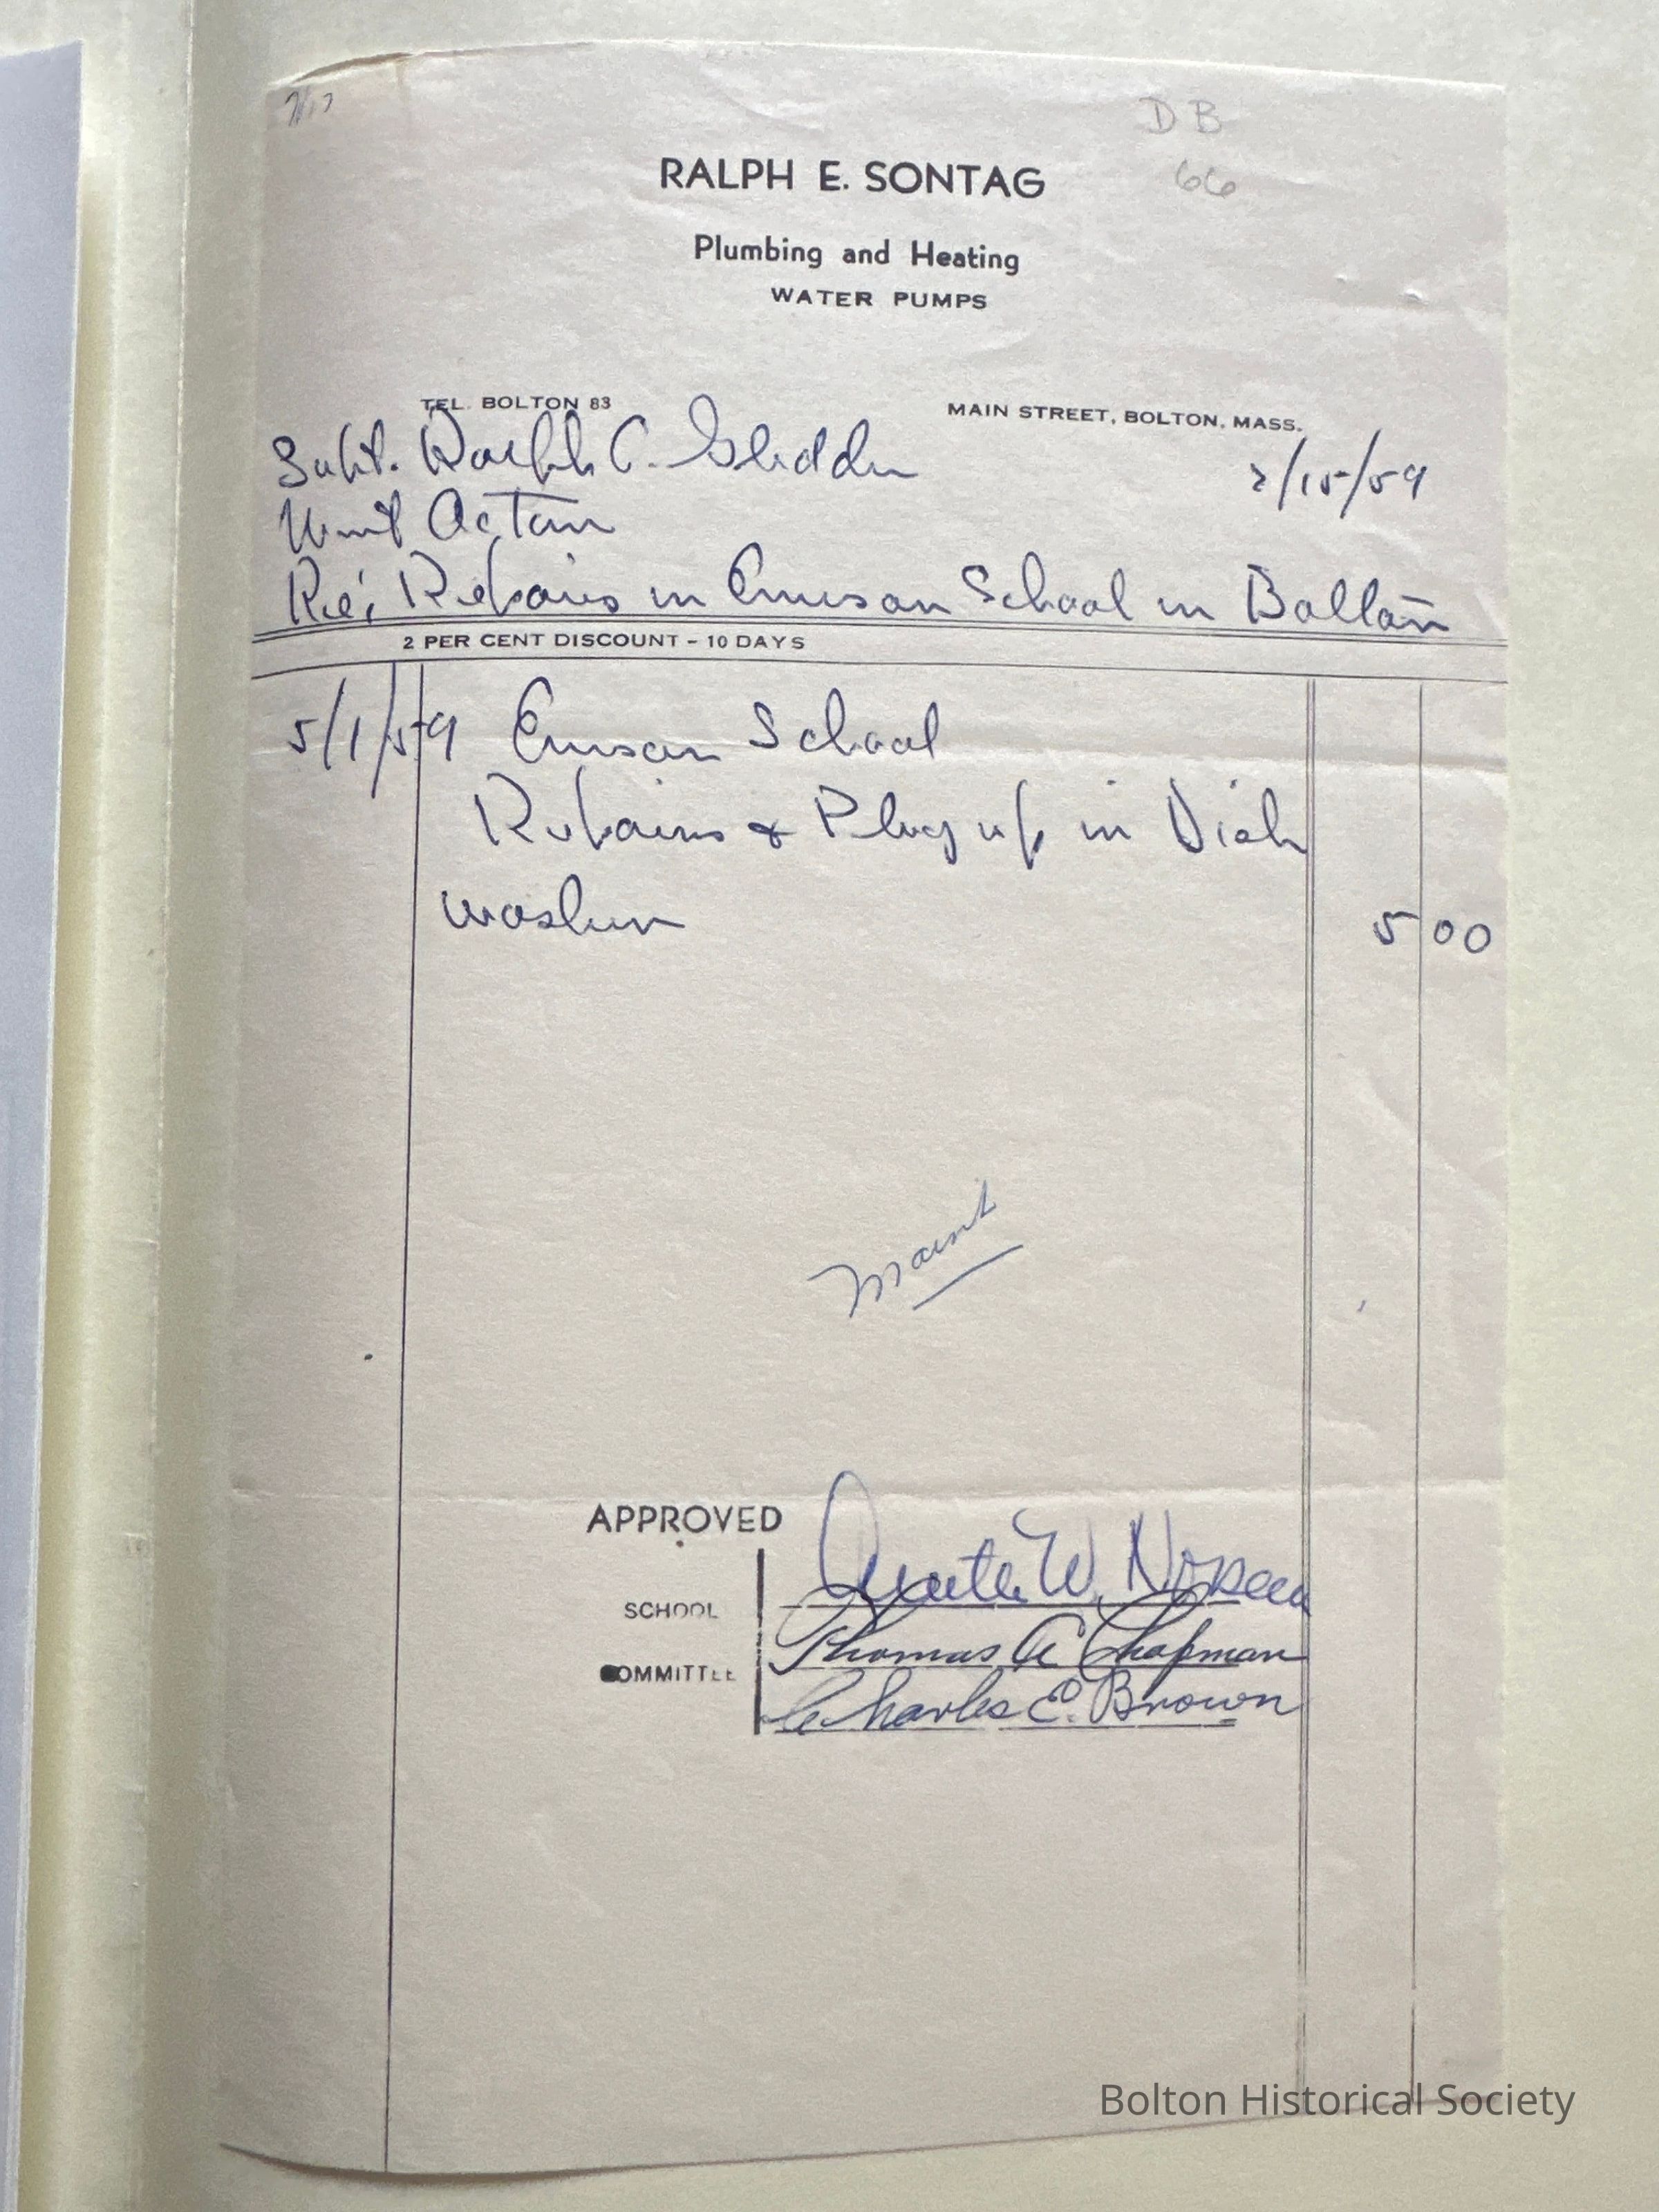 DB
66
RALPH E. SONTAG
Plumbing and Heating
WATER PUMPS
TEL. BOLTON 83
MAIN STREET, BOLTON, MASS.
Supt. Ralph C. Glidden
/15/59
West Acton
Re: Repairs in Emerson School in Bolton
2 PER CENT DISCOUNT - 10 DAYS
5/1/59 Emerson School
Repairs & Plug up in Dish
washer 5 00
Maint
APPROVED
W.
SCHOOL
Thomas A Chapman
COMMITTEE
Charles E. Brown
Bolton Historical Society